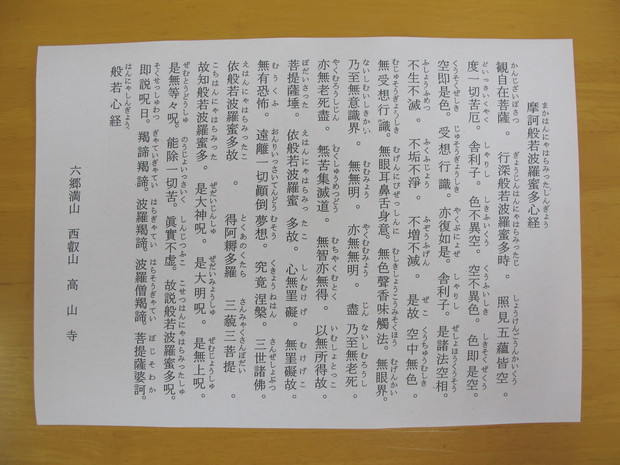 まかはんにゃはらみったしんぎょう
摩訶般若波羅蜜多心経
かんじざいぼさつ ぎょうじんはんにゃはらみったじ しょうけんごうんかいくう
観自在菩薩。行深般若波羅蜜多時。照見五蘊皆空。
どいっさいくやく しゃりし しきふいくう くうふいしき しきそくぜくう
度一切苦厄。舎利子。色不異空。空不異色。色即是空。
くうそくぜしき じゅそうぎょうしき やくぶにょぜ しゃりし ぜしょほうくうそう
空即是色。受想行識。亦復如是。舎利子。是諸法空相。
ふしょうふめつ ふくふじょう ふぞうふげん ぜこ くうちゅうむしき
不生不滅。不垢不淨。不增不減。是故 空中無色。
むじゅそうぎょうしき むげんにびぜっしんに むしきしょうこうみそくほう むげんかい
無受想行識。無眼耳鼻舌身意。無色聲香味觸法。無眼界。
ないしむいしきかい むむみょう やくむむみょう じん ないしむろうし
乃至無意識界。無無明。亦無無明。盡 乃至無老死。
やくむろうしじん むくしゅうめつどう むちやくむとく いむしょとっこ
亦無老死盡。無苦集滅道。無智亦無得。以無所得故。
ぼだいさった えはんにゃはらみったこ しんむけげ むけげこ
菩提薩埵。依般若波羅蜜多故。心無罣礙。無罣礙故。
むうくふ おんりいっさいてんどうむそう くきょうねはん さんぜしょぶつ
無有恐怖。遠離一切顚倒夢想。究竟涅槃。三世諸佛。
えはんにゃはらみったこ とくあのくたら さんみゃくさんぼだい
依般若波羅蜜多故。得阿耨多羅 三藐三菩提。
こちはんにゃはらみった ぜだいじんしゅ ぜだいみょうしゅ ぜむじょうしゅ
故知般若波羅蜜多。是大神呪。是大明呪。是無上呪。
ぜむとうどうしゅ のうじょいっさいく しんじつふこ こせつはんにゃはらみったしゅ
是無等々呪。能除一切苦。眞實不虚。故説般若波羅蜜多呪。
そくせっしゅわつ ぎゃていぎゃてい はらぎゃてい はらそうぎゃてい ぼじそわか
即説呪曰。羯諦羯諦。波羅羯諦。波羅僧羯諦。菩提薩婆訶。
はんにゃしんぎょう
般若心経
六郷満山 西叡山 高山寺